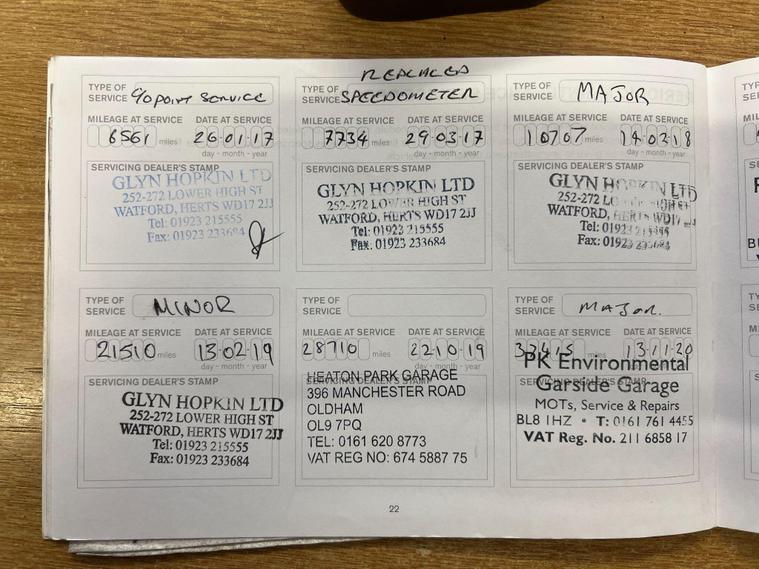 TYPE OF
SERVICE 90 POINT SERVICE
MILEAGE AT SERVICE DATE AT SERVICE
6561 miles 26-01-17
day - month - year
SERVICING DEALER'S STAMP
GLYN HOPKIN LTD
252-272 LOWER HIGH ST
WATFORD, HERTS WD17 2JJ
Tel: 01923 215555
Fax: 01923 233684
REPLACED
TYPE OF
SERVICE SPEEDOMETER
MILEAGE AT SERVICE DATE AT SERVICE
7734 miles 29-03-17
day - month - year
SERVICING DEALER'S STAMP
GLYN HOPKIN LTD
252-272 LOWER HIGH ST
WATFORD, HERTS WD17 2JJ
Tel: 01923 215555
Fax: 01923 233684
TYPE OF
SERVICE MAJOR
MILEAGE AT SERVICE DATE AT SERVICE
10707 miles 14-02-18
day - month - year
SERVICING DEALER'S STAMP
GLYN HOPKIN LTD
252-272 LOWER HIGH ST
WATFORD, HERTS WD17
Tel: 01923 215555
Fax: 01923 233684
TYPE OF
SERVICE MINOR
MILEAGE AT SERVICE DATE AT SERVICE
21510 miles 13-02-19
day - month - year
SERVICING DEALER'S STAMP
GLYN HOPKIN LTD
252-272 LOWER HIGH ST
WATFORD, HERTS WD17 2JJ
Tel: 01923 215555
Fax: 01923 233684
TYPE OF
SERVICE
MILEAGE AT SERVICE DATE AT SERVICE
28710 miles 22-10-19
day - month - year
SERVICING DEALER'S STAMP
HEATON PARK GARAGE
396 MANCHESTER ROAD
OLDHAM
OL9 7PQ
TEL: 0161 620 8773
VAT REG NO: 674 5887 75
TYPE OF
SERVICE MAJOR.
MILEAGE AT SERVICE DATE AT SERVICE
miles 13-11-20
SERVICING DEALER'S STAMP
PK Environmental
Garside Garage
MOTs, Service & Repairs
BL8 1HZ • T: 0161 761 4455
VAT Reg. No. 211 6858 17
22